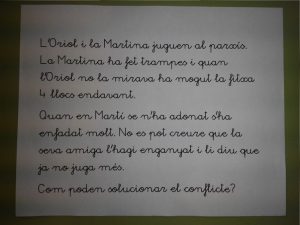 L'Oriol i la Martina juguen al parxís.
La Martina ha fet trampes i quan
l'Oriol no la mirava ha mogut la fitxa
4 llocs endavant.
Quan en Martí se n'ha adonat s'ha
enfadat molt. No es pot creure que la
seva amiga l'hagi enganyat i li diu que
ja no juga més.
Com poden solucionar el conflicte?